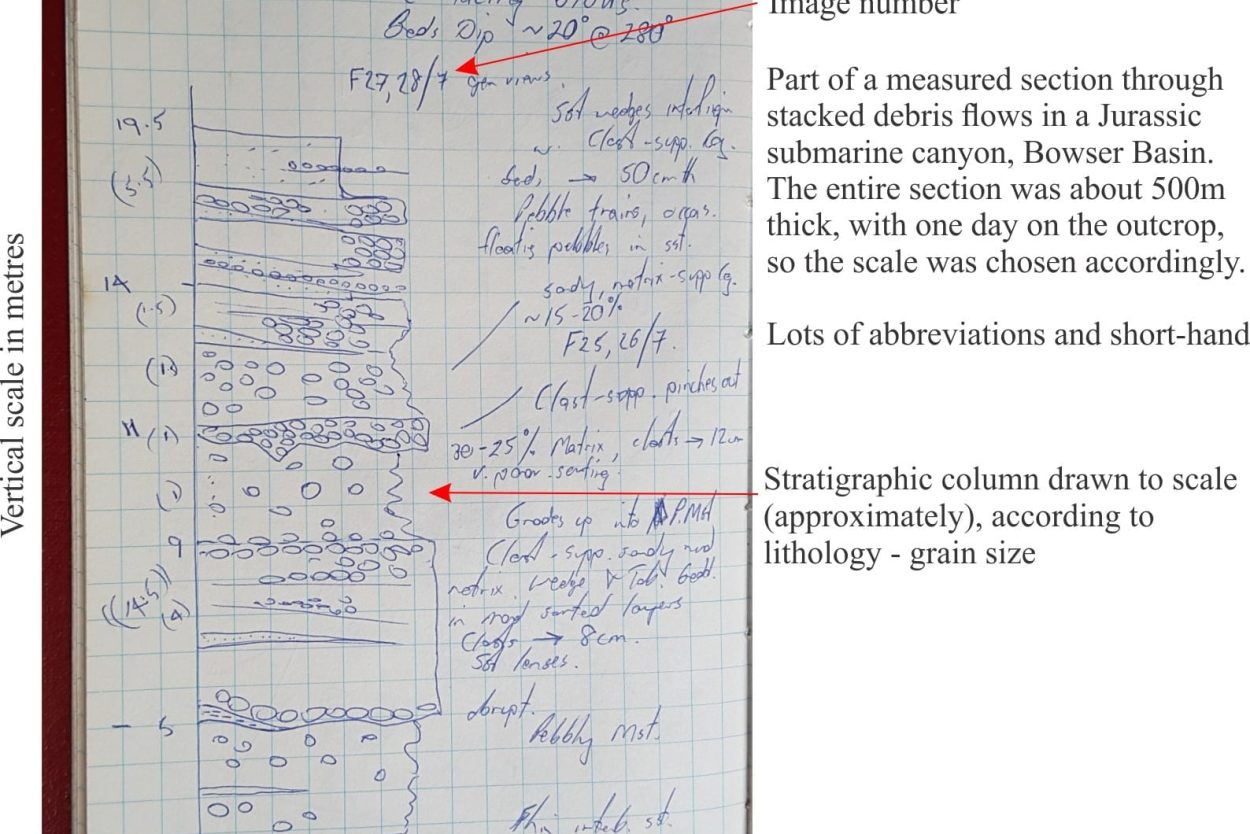 Image number
Beds Dip ~20° @ 280°
F27,28/7 gen views.
Part of a measured section through
stacked debris flows in a Jurassic
submarine canyon, Bowser Basin.
The entire section was about 500m
thick, with one day on the outcrop,
so the scale was chosen accordingly.
Lots of abbreviations and short-hand
Stratigraphic column drawn to scale
(approximately), according to
lithology - grain size
Vertical scale in metres
19.5
(5.5)
14
(1.5)
(1)
11 (1)
(1)
9
((14.5))
(4)
- 5
Sst wedges
w. Clast-supp. Cg.
beds → 50cm th
Pebble trains, occas.
floatig pebbles in sst.
sady, matrix-supp Cg.
~15-20%
F25,26/7.
Clast-supp. pinches out
20-25% Matrix, clasts → 12cm
v. poor sorting.
Grades up into P.Mst
Clast-supp. sady mud
matrix. Wedge & Tab. bedd.
in mod sorted layers
Clasts → 8cm.
Sst lenses.
abrupt.
Pebbly Mst.
Thin interb. sst.